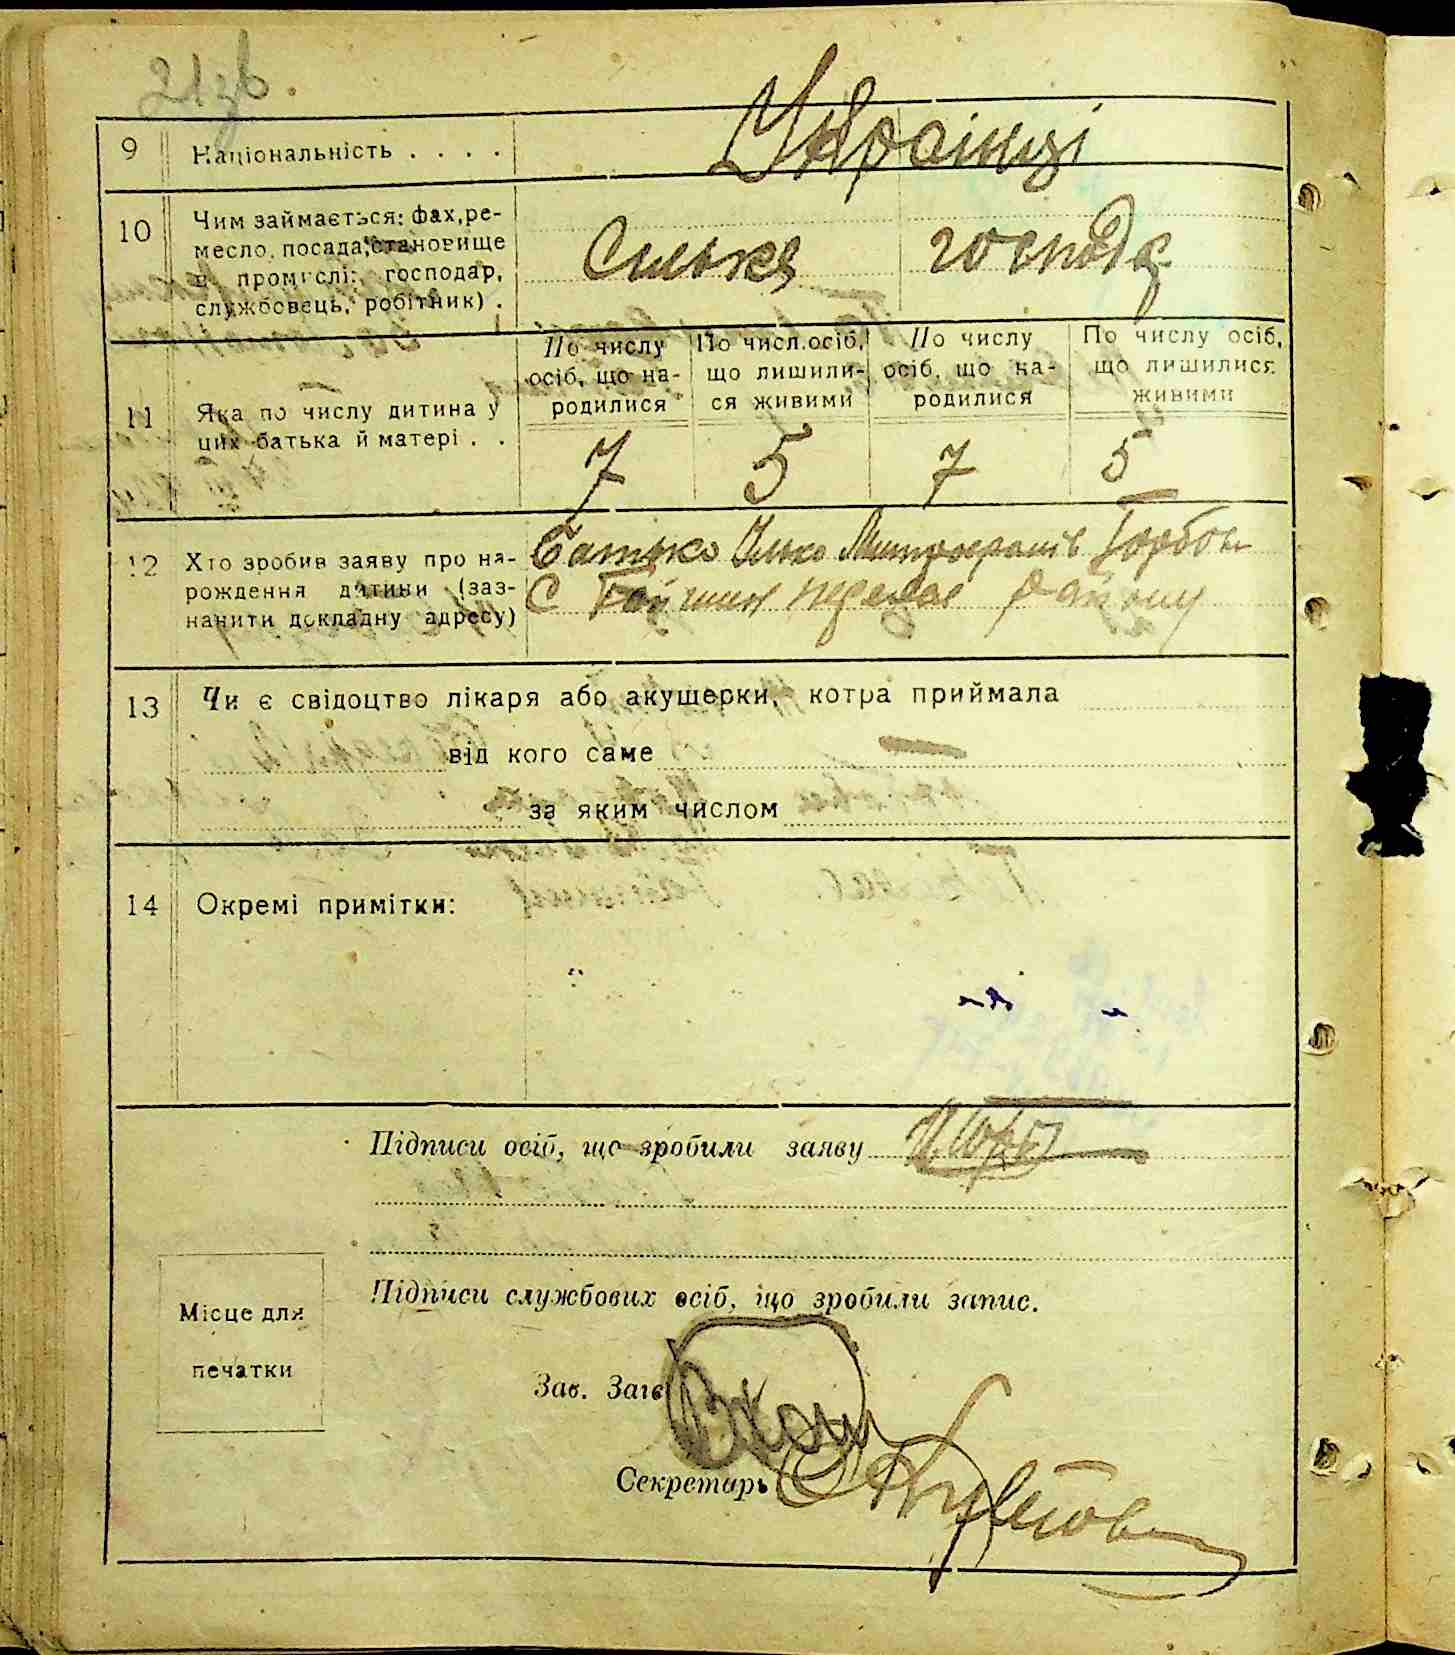 21 зв.
9 Національність . . . . Українці
10 Чим займається: фах, ре-
месло, посада, становище
в промислі: господар,
службовець, робітник) .
Сильске господ.
По числу осіб, що на-родилися
По числ. осіб, що лишили-ся живими
По числу осіб, що на-родилися
По числу осіб, що лишилися живими
11 Яка по числу дитина у
цих батька й матері . .
7 5 7 5
12 Хто зробив заяву про на-
рождення дитини (заз-
начити докладну адресу)
Батько Илько Митрофанів Горбов
С району
13 Чи є свідоцтво лікаря або акушерки, котра приймала
від кого саме —
за яким числом
14 Окремі примітки:
Підписи осіб, що зробили заяву
Підписи службових осіб, що зробили запис.
Місце для
печатки
Зав. Загв
Секретарь